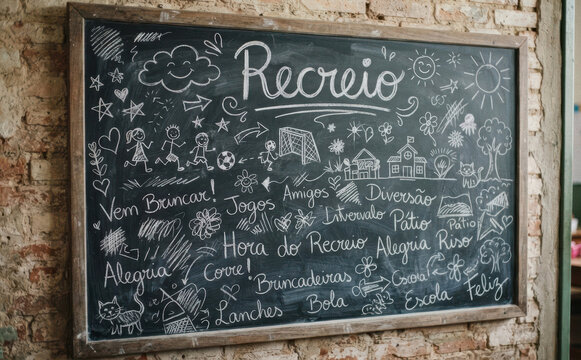 Recreio
Vem Brincar! Jogos Amigos Diversão
Intervalo Pátio Pátio
Hora do Recreio Alegria Riso
Alegria Corre! Brincadeiras Escola
Lanches Bola Escola Feliz